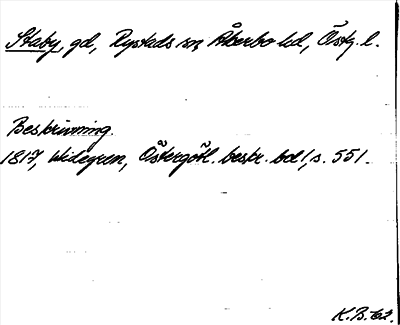 Staby, gd, Rystads sn, Åkerbo hd, Östg. l.
Beskrivning.
1817, Widegren, Östergötl. beskr. bd 1, s. 551.
K.B.